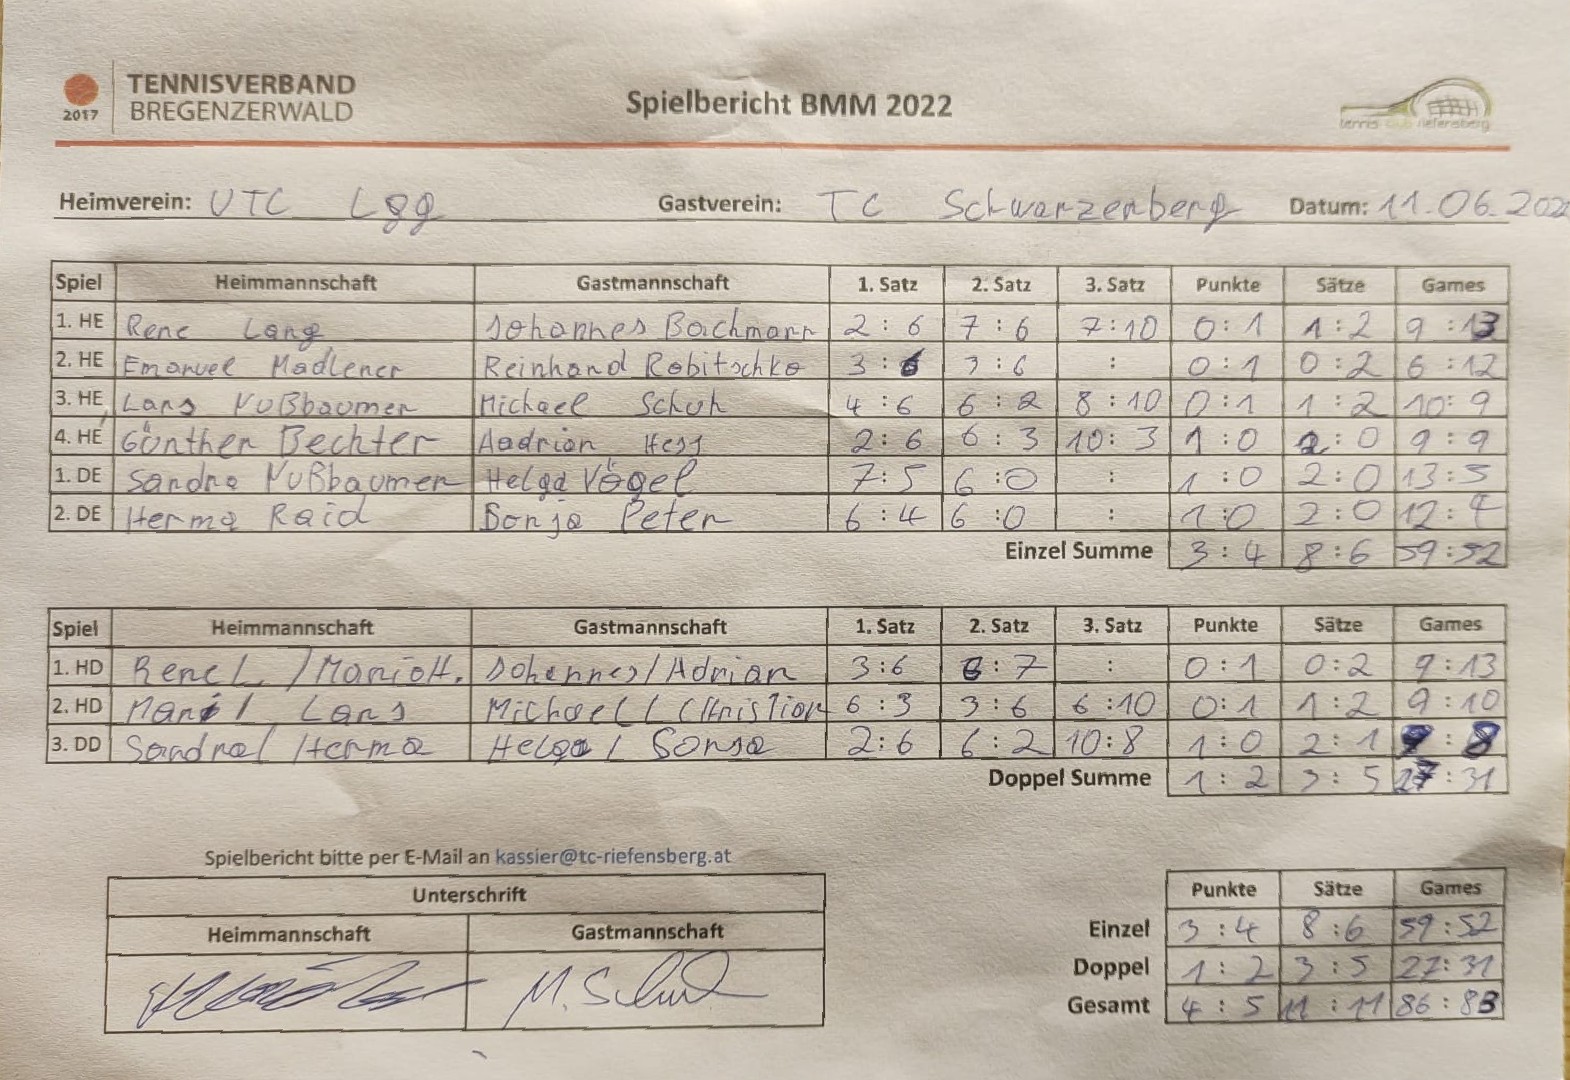 2017 TENNISVERBAND BREGENZERWALD
Spielbericht BMM 2022
tennis club riefensberg
Heimverein: UTC Lgg Gastverein: TC Schwarzenberg Datum: 11.06.202
Spiel Heimmannschaft Gastmannschaft 1. Satz 2. Satz 3. Satz Punkte Sätze Games
1. HE Rene Lang Johannes Bachmann 2 : 6 7 : 6 7 : 10 0 : 1 1 : 2 9 : 13
2. HE Emanuel Madlener Reinhard Robitschko 3 : 6 3 : 6 : 0 : 1 0 : 2 6 : 12
3. HE Lars Nußbaumer Michael Schuh 4 : 6 6 : 2 8 : 10 0 : 1 1 : 2 10 : 9
4. HE Günther Bechter Aadrian Hess 2 : 6 6 : 3 10 : 3 1 : 0 2 : 0 9 : 9
1. DE Sandra Nußbaumer Helga Vögel 7 : 5 6 : 0 : 1 : 0 2 : 0 13 : 5
2. DE Herma Raid Sonja Peter 6 : 4 6 : 0 : 1 : 0 2 : 0 12 : 4
Einzel Summe 3 : 4 8 : 6 59 : 52
Spiel Heimmannschaft Gastmannschaft 1. Satz 2. Satz 3. Satz Punkte Sätze Games
1. HD Rene L. / Johannes / Adrian 3 : 6 6 : 7 : 0 : 1 0 : 2 9 : 13
2. HD / Lars Michael / Christian 6 : 3 3 : 6 6 : 10 0 : 1 1 : 2 9 : 10
3. DD Sandra / Herma Helga / Sonja 2 : 6 6 : 2 10 : 8 1 : 0 2 : 1 9 : 8
Doppel Summe 1 : 2 3 : 5 27 : 31
Spielbericht bitte per E-Mail an kassier@tc-riefensberg.at
Unterschrift
Heimmannschaft Gastmannschaft
M. Schuh
Punkte Sätze Games
Einzel 3 : 4 8 : 6 59 : 52
Doppel 1 : 2 3 : 5 27 : 31
Gesamt 4 : 5 11 : 11 86 : 83